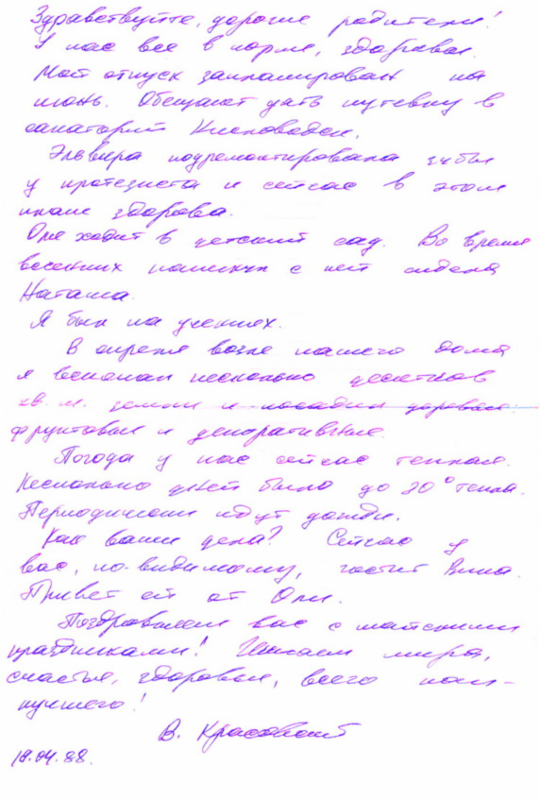 Здравствуйте, дорогие родители!
У нас все в норме, здоровы.
Мой отпуск запланирован на
июнь. Обещают дать путевку в
санаторий Кисловодск.
Эльвира подремонтировала зубы
у протезиста и сейчас в этом
плане здорова.
Оля ходит в детский сад. Во время
весенних каникул с ней сидела
Наташа.
Я был на учениях.
В апреле возле нашего дома
я вскопал несколько десятков
кв. м. земли и посадил деревья:
фруктовые и декоративные.
Погода у нас сейчас теплая.
Несколько дней было до 20° тепла.
Периодически идут дожди.
Как ваши дела? Сейчас у
вас, по-видимому, гостит Вина.
Привет ей от Оли.
Поздравляем вас с майскими
праздниками! Желаем мира,
счастья, здоровья, всего наи-
лучшего!
В. Красовский
18.04.88.